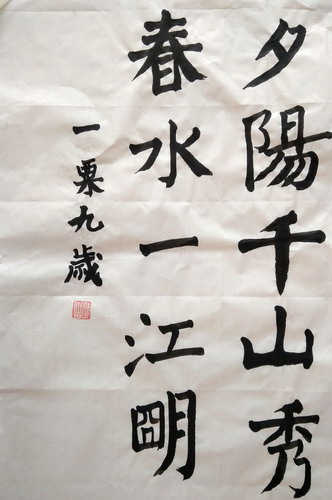 夕陽千山秀
春水一江明
一粟九歲